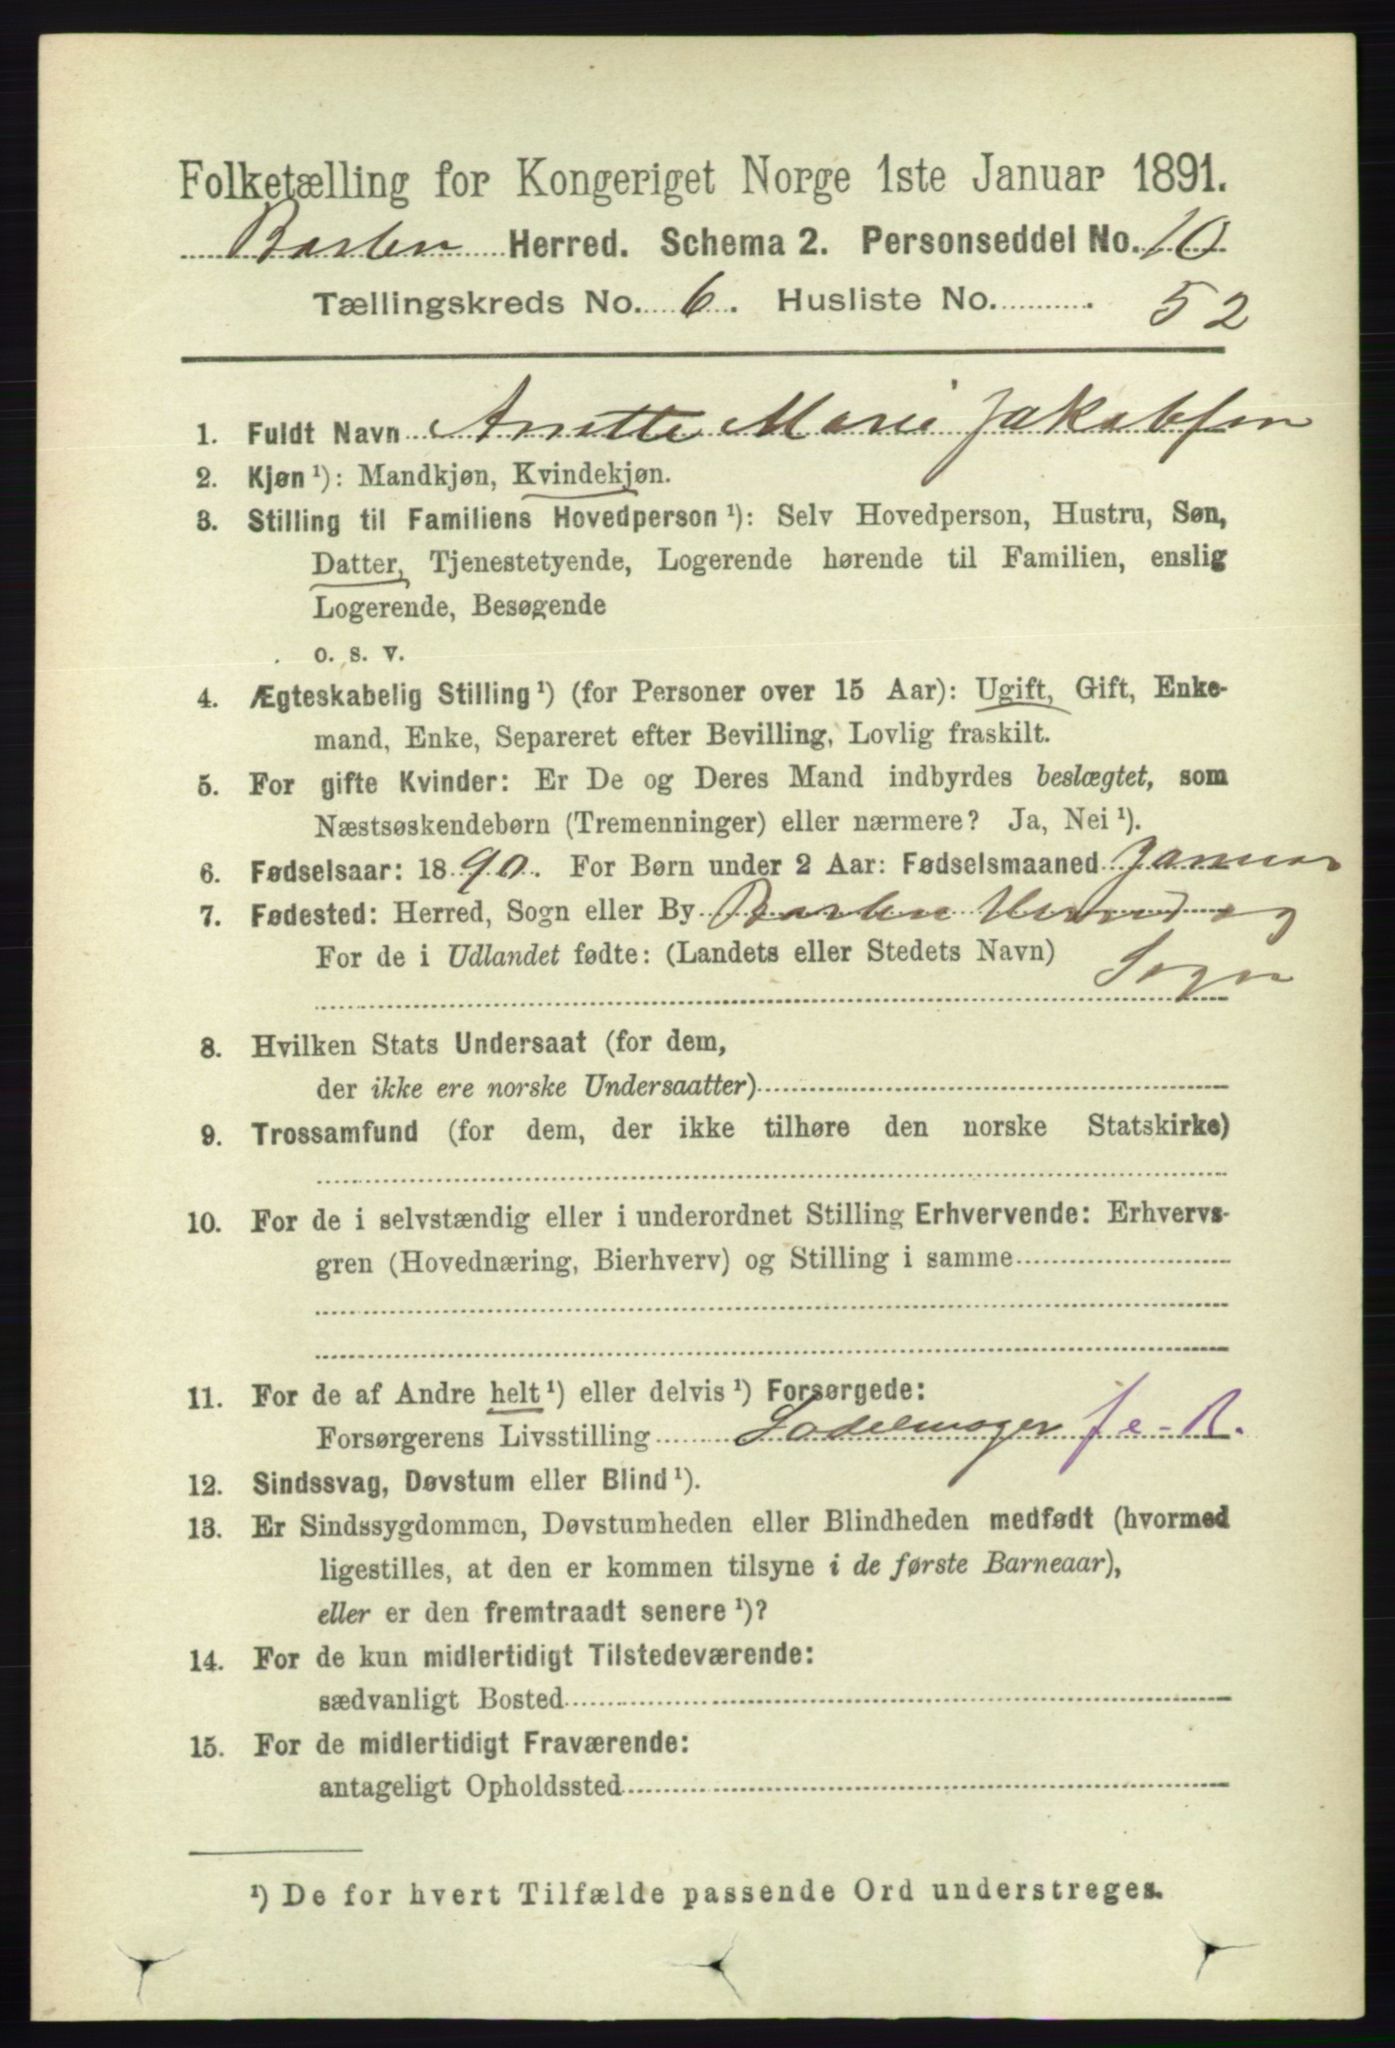 Folketælling for Kongeriget Norge 1ste Januar 1891.
Herred. Schema 2. Personseddel No. 10
Tællingskreds No. 6. Husliste No. . 52
1. Fuldt Navn Anette Marie Jakobsen
2. Kjøn ¹): Mandkjøn, Kvindekjøn.
3. Stilling til Familiens Hovedperson ¹): Selv Hovedperson, Hustru, Søn,
Datter, Tjenestetyende, Logerende hørende til Familien, enslig
Logerende, Besøgende
o. s. v.
4. Ægteskabelig Stilling ¹) (for Personer over 15 Aar): Ugift, Gift, Enke-
mand, Enke, Separeret efter Bevilling, Lovlig fraskilt.
5. For gifte Kvinder: Er De og Deres Mand indbyrdes beslægtet, som
Næstsøskendebørn (Tremenninger) eller nærmere? Ja, Nei ¹).
6. Fødselsaar: 1890. For Børn under 2 Aar: Fødselsmaaned Januar
7. Fødested: Herred, Sogn eller By Herred og
For de i Udlandet fødte: (Landets eller Stedets Navn) Sogn
8. Hvilken Stats Undersaat (for dem,
der ikke ere norske Undersaatter)
9. Trossamfund (for dem, der ikke tilhøre den norske Statskirke)
10. For de i selvstændig eller i underordnet Stilling Erhvervende: Erhvervs-
gren (Hovednæring, Bierhverv) og Stilling i samme
11. For de af Andre helt ¹) eller delvis ¹) Forsørgede:
Forsørgerens Livsstilling Sadelmager
12. Sindssvag, Døvstum eller Blind ¹).
13. Er Sindssygdommen, Døvstumheden eller Blindheden medfødt (hvormed
ligestilles, at den er kommen tilsyne i de første Barneaar),
eller er den fremtraadt senere ¹)?
14. For de kun midlertidigt Tilstedeværende:
sædvanligt Bosted
15. For de midlertidigt Fraværende:
antageligt Opholdssted
¹) De for hvert Tilfælde passende Ord understreges.